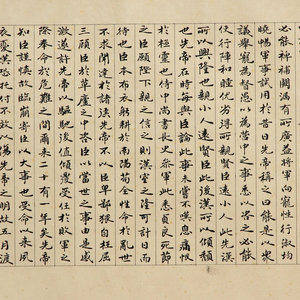 必能裨補闕漏有所廣益將軍向寵性行淑均
曉暢軍事試用於昔日先帝稱之曰能是以眾
議舉寵為督愚以為營中之事悉以咨之必能
使行陣和睦優劣得所親賢臣遠小人此先漢
所以興隆也親小人遠賢臣此後漢所以傾頹
也先帝在時每與臣論此事未嘗不嘆息痛恨
於桓靈也侍中尚書長史參軍此悉貞良死節
之臣願陛下親之信之則漢室之隆可計日而
待也臣本布衣躬耕於南陽苟全性命於亂世
不求聞達於諸侯先帝不以臣卑鄙猥自枉屈
三顧臣於草廬之中咨臣以當世之事由是感
激遂許先帝以驅馳後值傾覆受任於敗軍之
際奉命於危難之間爾來二十有一年矣先帝
知臣謹慎故臨崩寄臣以大事也受命以來夙
夜憂嘆恐託付不效以傷先帝之明故五月渡